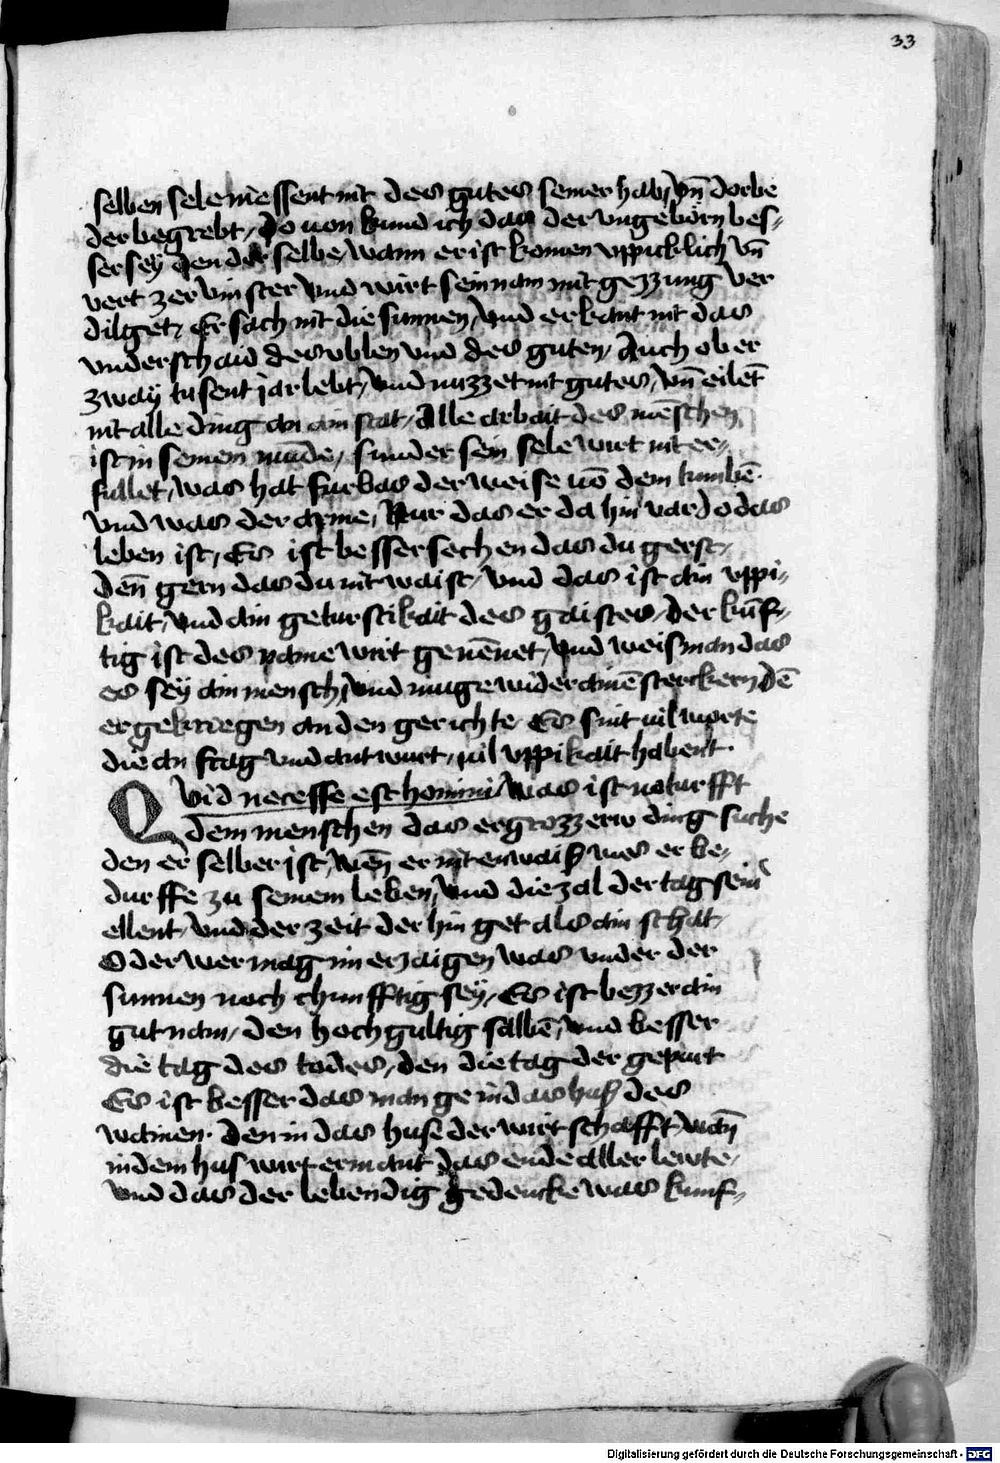 33
selben sele niessent nit des gutes seiner hab / vn̄ dorbe
der begrebt / do von kund ich das der vngeborn bes-
ser sey den der selbe / wann er ist komen vppicklich vn̄
vert zer vinster vnd wirt sein nam mit gezzung ver
dilget / Er sach nit die sunnen / vnd erkant nit das
vnderschaid des vblen vnd des guten / Auch ob er
zway tusent jar lebt / vnd nuzzet nit gutes / vn̄ eilet
nit alle ding an ain stat / Alle arbait des menschen
ist in seinem munde / sunder sein sele wirt nit er-
fullet / was hat furbas der weise uō dem tumbē
vnd was der arme / Nur das er da hin var do das
leben ist / Es ist besser sechen das du gerst /
den̄ gern das du nit waist / vnd das ist ain vppi-
kait / vnd ain geturstikait des gaistes / der kunf-
tig ist des name wirt genēnet / vnd weis man das
es sey ain mensch / vnd muge wider ainē sterckern dē
er gekriegen an den gerichte Es sint uil worte
die an frag vnd antwurt / uil vppikait habent .
Quid necesse est homini Was ist noturfft
dem menschen das er grozzerw ding suche
den er selber ist / wen̄ er nit enwaiß was er be-
durffe zu seinem leben / vnd die zal der tag sein
ellent / vnd der zeit der hin get als ain schat /
Oder wer mag im erzaigen was vnder der
sunnen noch chunfftig sey / Es ist bezzer ain
gut nam / den hochgultig salbē / vnd besser
die tag des todes / den die tag der gepurt
Es ist besser das man ge in das huß des
wainen . den in das huse der wirtschafft wan̄
in dem hus wirt ermant das ende aller lewte /
vnd das der lebendig gedencke was kunf-
Digitalisierung gefördert durch die Deutsche Forschungsgemeinschaft - DFG